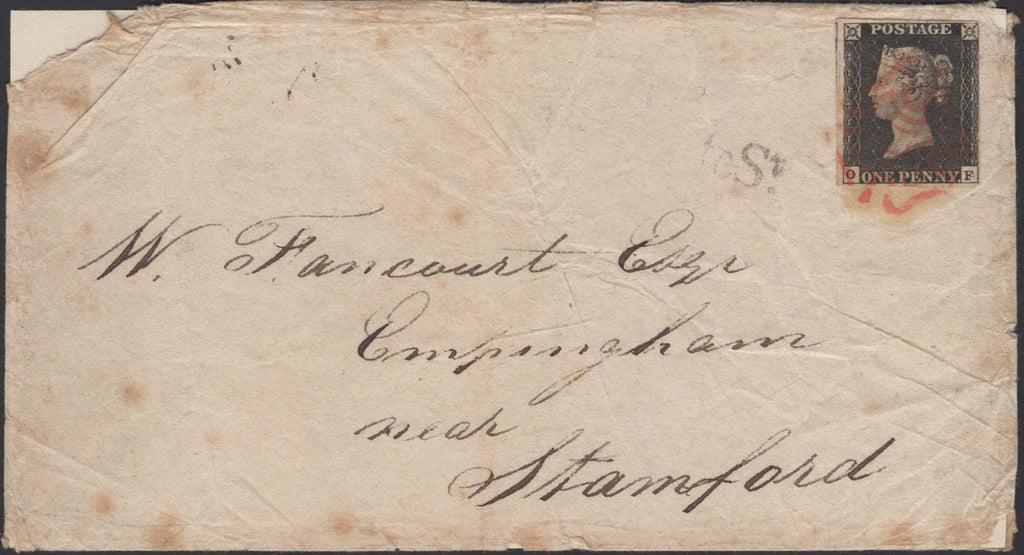 POSTAGE
O ONE PENNY. F
St
W. Fancourt Esqr
Empingham
near
Stamford